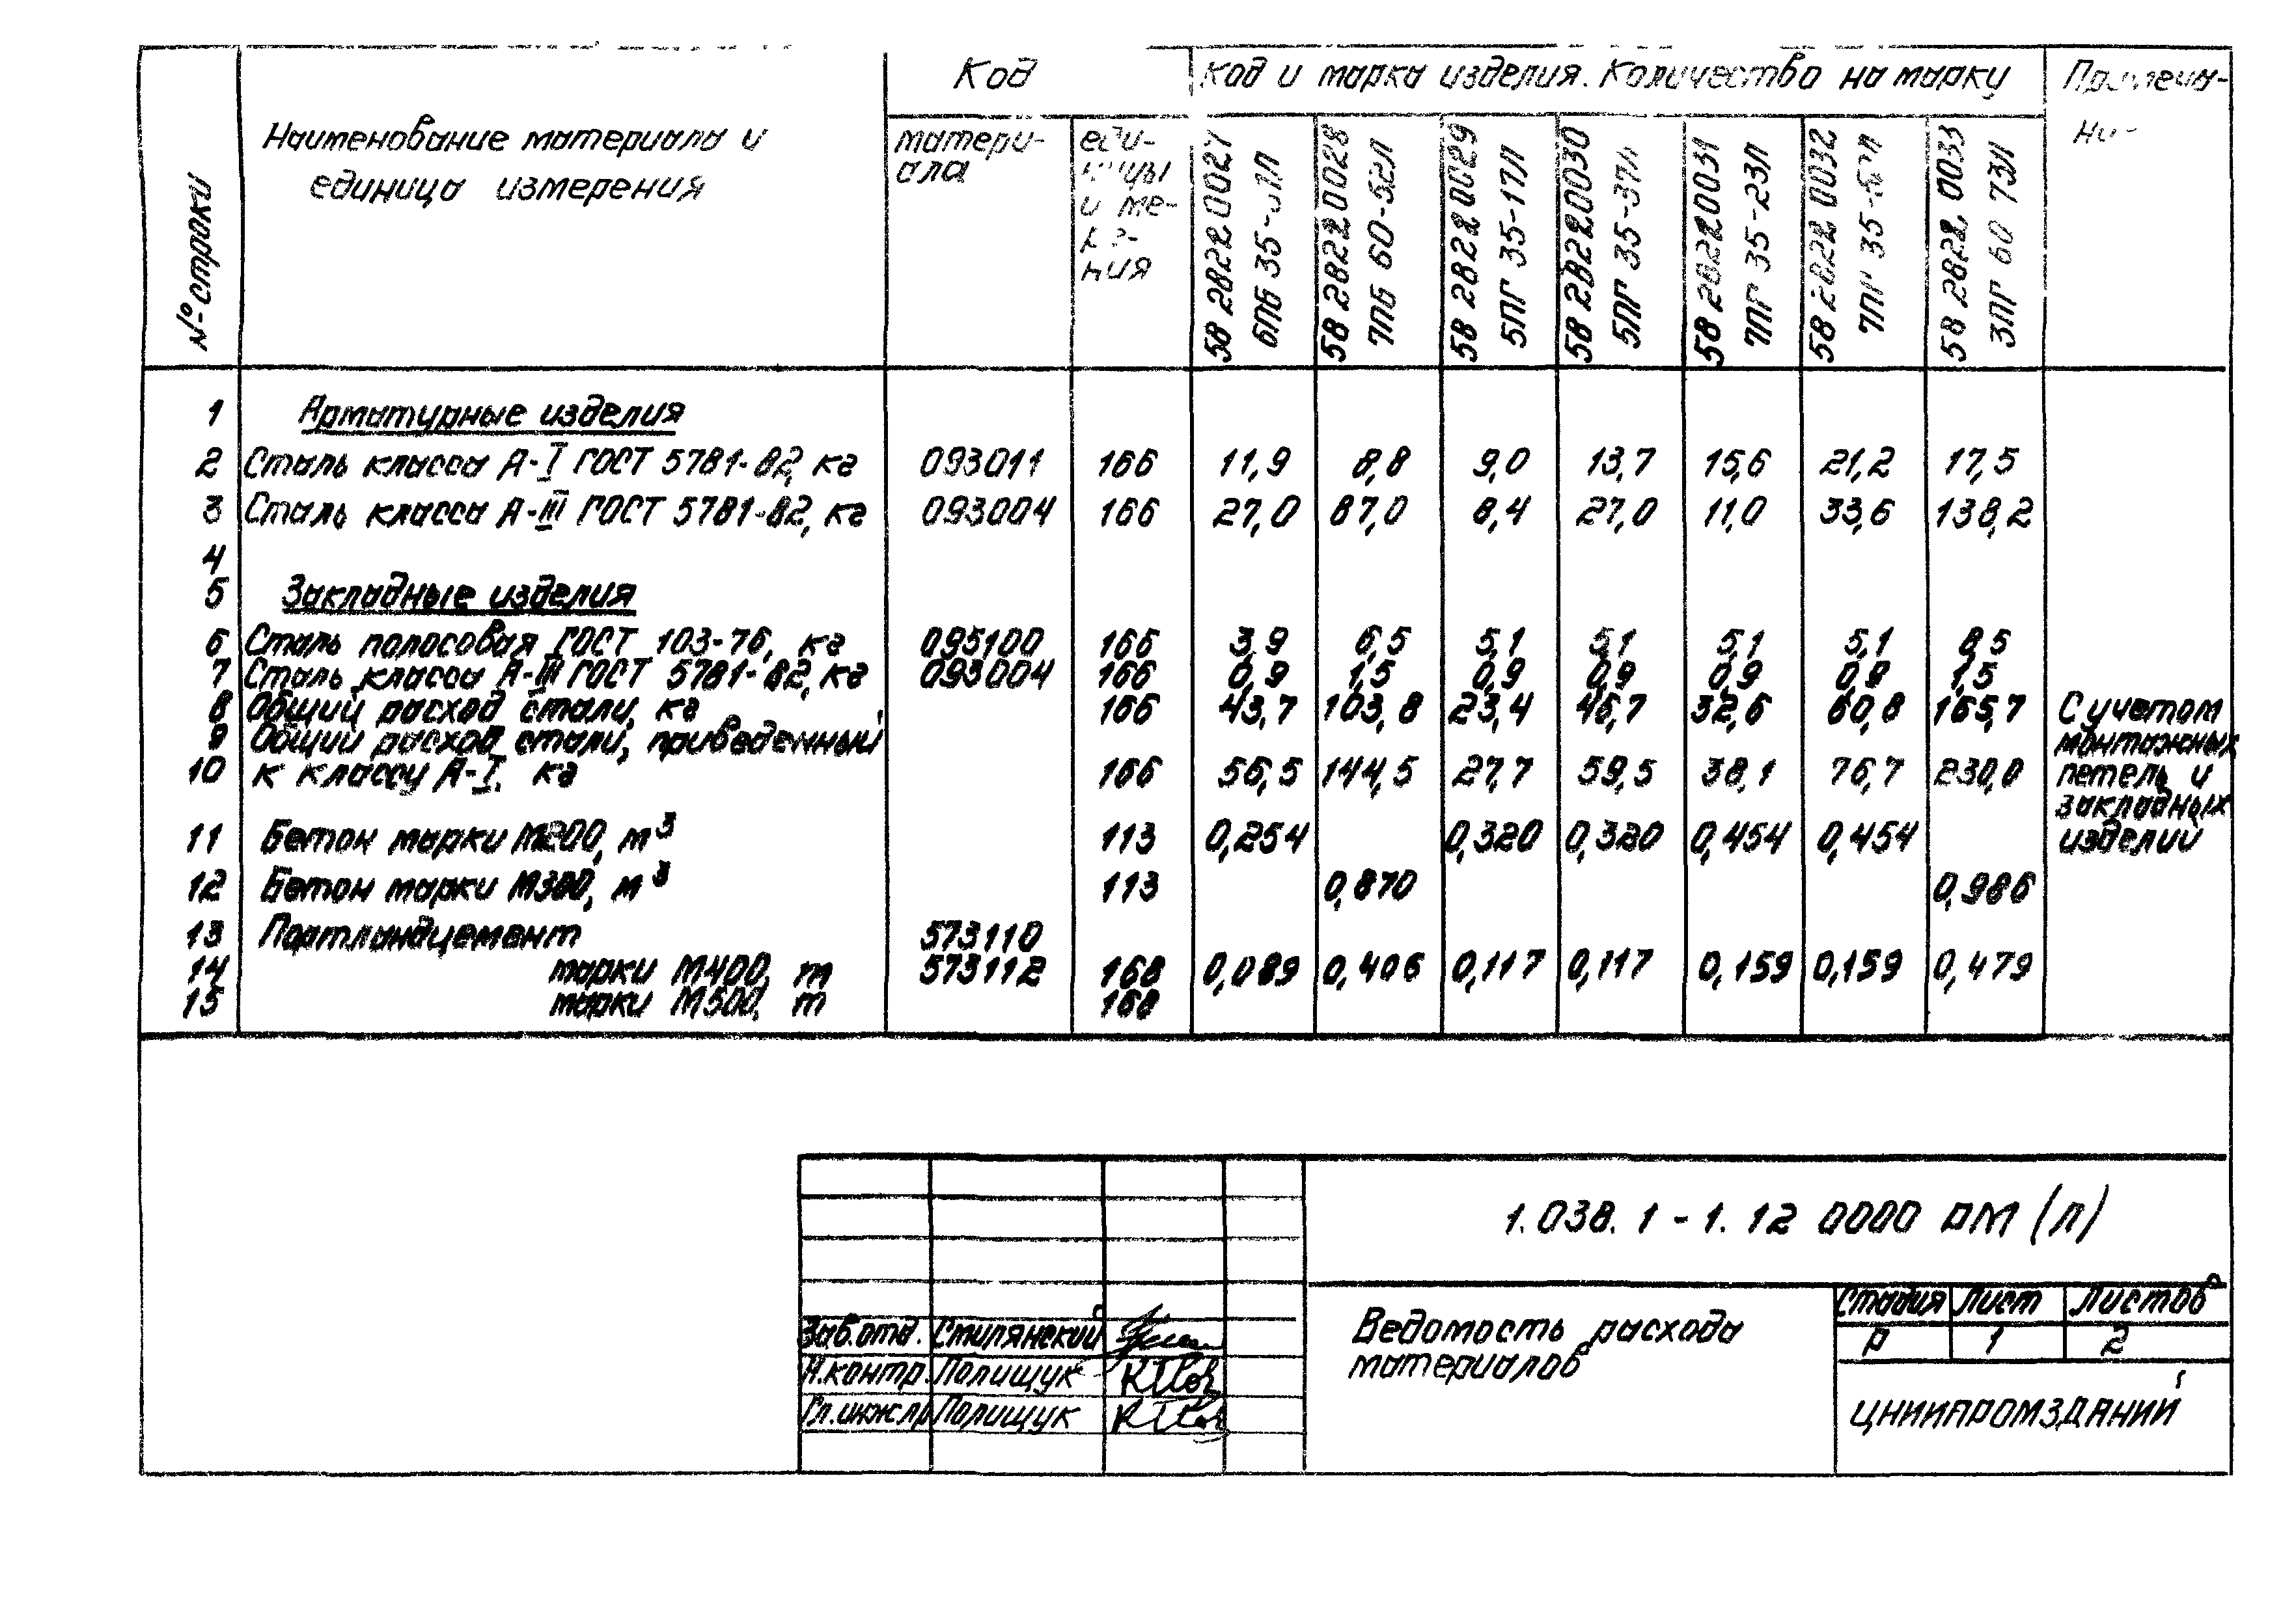 Код
Код и марка изделия. Количество на марку
Наименование материала и
единица измерения
№ строки
матери-
ала
еди-
и ме-
ния
58 2822 0027
6ПБ 35-
58 2822 0028
7ПБ 60-52Л
58 2822 0029
5ПГ 35-17Л
58 2822 0030
5ПГ 35-37Л
58 2822 0031
7ПГ 35-23Л
58 2822 0032
7ПГ
58 2822 0033
3ПГ 60 73Л
1 Арматурные изделия
2 Сталь класса А-I ГОСТ 5781-82, кг 093011 166 11,9 8,8 9,0 13,7 15,6 21,2 17,5
3 Сталь класса А-III ГОСТ 5781-82, кг 093004 166 27,0 87,0 8,4 27,0 11,0 33,6 138,2
4
5 Закладные изделия
6 Сталь полосовая ГОСТ 103-76, кг 095100 166 3,9 6,5 5,1 5,1 5,1 5,1 8,5
7 Сталь класса А-III ГОСТ 5781-82, кг 093004 166 0,9 1,5 0,9 0,9 0,9 0,9 1,5
8 Общий расход стали, кг 166 43,7 103,8 23,4 46,7 32,6 60,8 165,7 С учетом
9 Общий расход стали, приведенный монтажных
10 к классу А-I, кг 166 56,5 144,5 27,7 59,5 38,1 76,7 230,0 петель и
закладных
11 Бетон марки М200, м³ 113 0,254 0,320 0,320 0,454 0,454 изделий
12 Бетон марки М300, м³ 113 0,870 0,986
13 Портландцемент 573110
14 марки М400, т 573112 168 0,089 0,406 0,117 0,117 0,159 0,159 0,479
15 марки М500, т 168
1.038.1-1.12 0000 РМ (Л)
Ведомость расхода
материалов
Стадия Лист Листов
Р 1 2
ЦНИИПРОМЗДАНИЙ
Зав.отд. Стирянский
Н.контр. Полищук
Гл.инж.пр Полищук